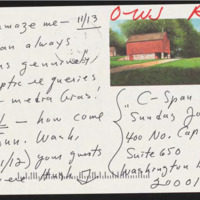 O-WS R
maze me - 11/13
an always
ns genuinely
ptic re queries
- media bias!
1 - how come
un. Wash.
1/12) your guests
were think
"C-Span
Sunday Jo
400 No. Cap
Suite 650
Washington D
20001